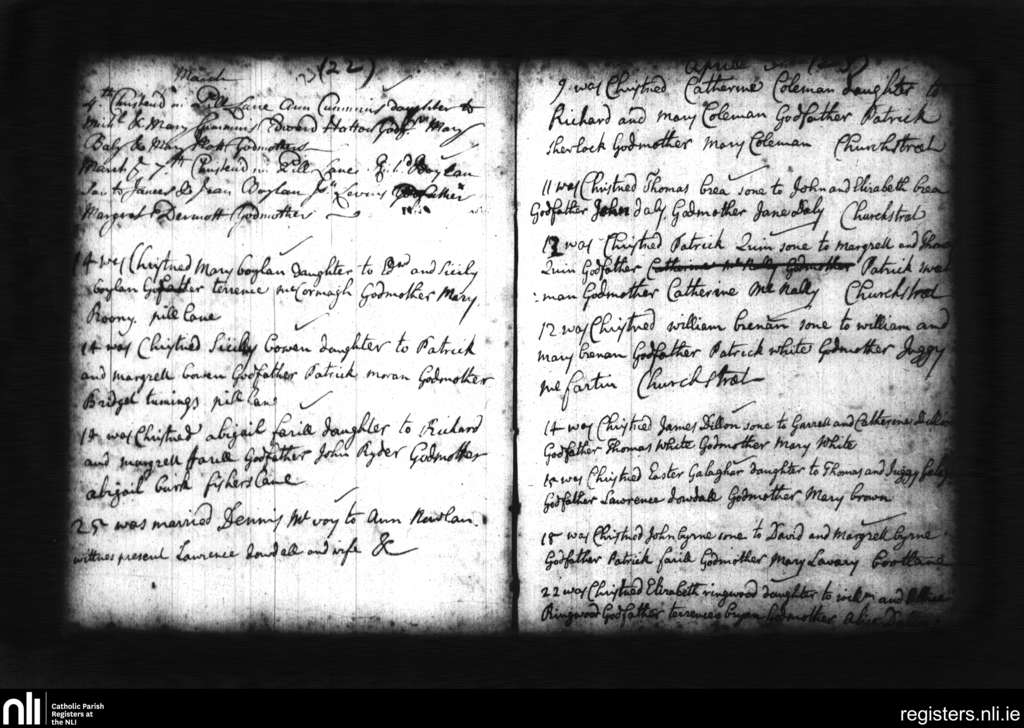 (22)
March
4th Christend in Pill Lane Ann Cummins daughter to
Mich.l & Mary Cummins Edward Hatton Mary
Daly & Mary Godmothers
March 7th Christend in Pill Lane Boylan
Son to James & Jean Boylan
Margret Dermott Godmother
14 was Christned Mary boylan daughter to and Sicily
boylan Godfather terrence mcCormagh Godmother Mary
Roony pill lane
14 was Christned Sicily bowen daughter to Patrick
and margrett bowen Godfather Patrick moran Godmother
Bridget pill lane
was Christned abigail farill daughter to Richard
and margrett farill Godfather John Ryder Godmother
abigail burk fishers lane
25 was married Dennis Mc voy to Ann Nowlan
wittnes present Lawrence dowdell and wife &c
Aprill
9 was Christned Catherine Coleman daughter to
Richard and mary Coleman Godfather Patrick
Sherlock Godmother Mary Coleman Churchstreet
11 was Christned Thomas brea sone to John and Elizabeth brea
Godfather John daly Godmother Jane daly Churchstreet
12 was Christned Patrick Quin sone to margrett and
Quin Godfather Catherine Mc Nally Godmother Patrick
man Godmother Catherine Mc Nally Churchstreet
12 was Christned william brenan sone to william and
mary brenan Godfather Patrick white Godmother Juggy
mc fartin Churchstreet
14 was Christned James Dillon sone to Garrett and Catherine Dillon
Godfather Thomas White Godmother Mary White
was Christned Easter Galaghar daughter to Thomas and Juggy
Godfather Lawrence dowdall Godmother Mary brown
18 was Christned John byrne sone to David and Margrett byrne
Godfather Patrick farill Godmother Mary Lavary bootlane
22 was Christned Elizabeth ringwood daughter to and
Ringwood Godfather terrence bryan Godmother
nli
Catholic Parish
Registers at
the NLI
registers.nli.ie